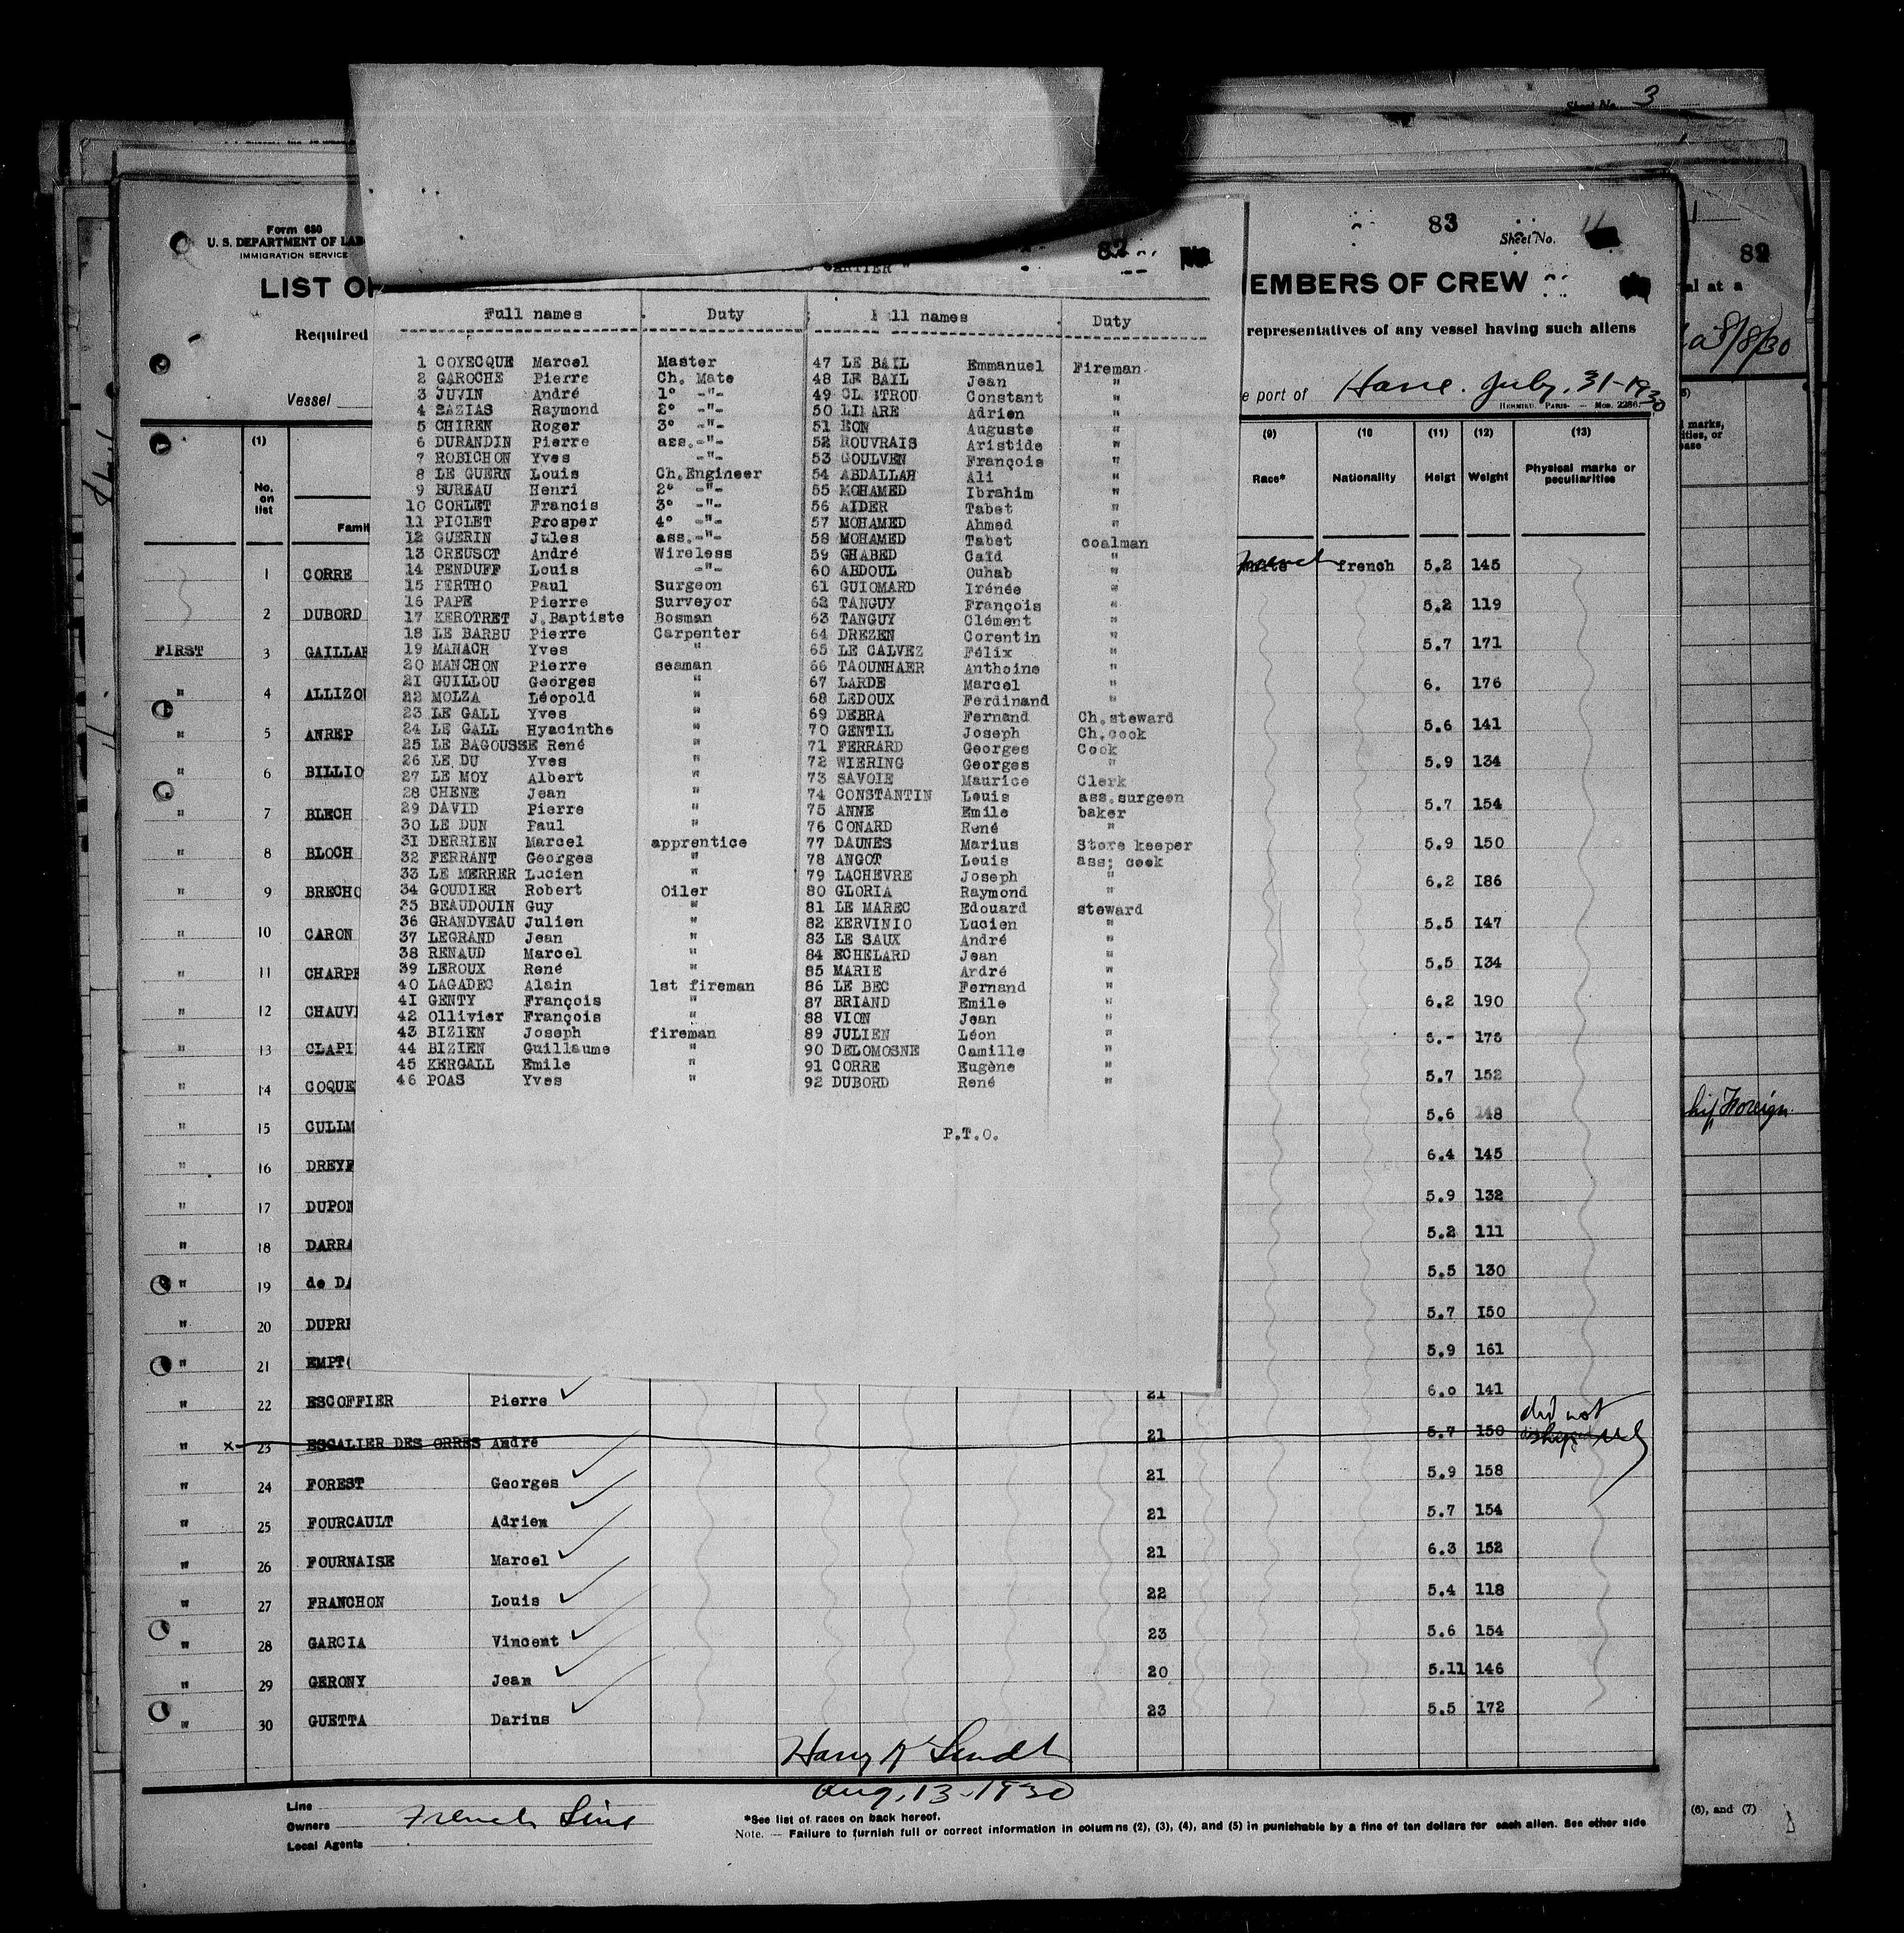 Sheet No. 3
Form 680
U. S. DEPARTMENT OF LAB
IMMIGRATION SERVICE
LIST OF
Required
Vessel
CARTIER "
82
83
Sheet No.
EMBERS OF CREW
representatives of any vessel having such aliens
e port of Havre. July. 31-1930
HERMIEU. PARIS — Mod. 2286.
89
al at a
8/8/30
Full names Duty ll names Duty
1 COYECQUE Marcel Master
2 GAROCHE Pierre Ch. Mate
3 JUVIN André 1° -"-
4 SAZIAS Raymond 2° -"-
5 CHIREN Roger 3° -"-
6 DURANDIN Pierre ass.-"-
7 ROBICHON Yves -"-
8 LE GUERN Louis Ch.Engineer
9 BUREAU Henri 2° -"-
10 CORLET Francis 3° -"-
11 PICLET Prosper 4° -"-
12 GUERIN Jules ass.-"-
13 CREUSOT André Wireless
14 PENDUFF Louis -"-
15 BERTHO Paul Surgeon
16 PAPE Pierre Surveyor
17 KEROTRET J.Baptiste Bosman
18 LE BARBU Pierre Carpenter
19 MANACH Yves "
20 MANCHON Pierre seaman
21 GUILLOU Georges "
22 MOLZA Léopold "
23 LE GALL Yves "
24 LE GALL Hyacinthe "
25 LE BAGOUSSE René "
26 LE DU Yves "
27 LE MOY Albert "
28 CHENE Jean "
29 DAVID Pierre "
30 LE DUN Paul "
31 DERRIEN Marcel apprentice
32 FERRANT Georges "
33 LE MERRER Lucien "
34 GOUDIER Robert Oiler
35 BEAUDOUIN Guy "
36 GRANDVEAU Julien "
37 LEGRAND Jean "
38 RENAUD Marcel "
39 LEROUX René "
40 LAGADEC Alain 1st fireman
41 GENTY François "
42 Ollivier François "
43 BIZIEN Joseph fireman
44 BIZIEN Guillaume "
45 KERGALL Emile "
46 POAS Yves "
47 LE BAIL Emmanuel Fireman
48 LE BAIL Jean "
49 Constant "
50 Adrien "
51 Auguste "
52 ROUVRAIS Aristide "
53 GOULVEN François "
54 ABDALLAH Ali "
55 MOHAMED Ibrahim "
56 AIDER Tabet "
57 MOHAMED Ahmed "
58 MOHAMED Tabet coalman
59 GHABED Caïd "
60 ABDOUL Ouhab "
61 GUIOMARD Irénée "
62 TANGUY François "
63 TANGUY Clément "
64 DREZEN Corentin "
65 LE CALVEZ Félix "
66 TAOUNHAER Anthoine "
67 LARDE Marcel "
68 LEDOUX Ferdinand "
69 DEBRA Fernand Ch.steward
70 GENTIL Joseph Ch.cook
71 FERRARD Georges Cook
72 WIERING Georges "
73 SAVOIE Maurice Clerk
74 CONSTANTIN Louis ass.surgeon
75 ANNE Emile baker
76 CONARD René "
77 DAUNES Marius Store keeper
78 ANGOT Louis ass; cook
79 LACHEVRE Joseph "
80 GLORIA Raymond "
81 LE MAREC Edouard steward
82 KERVINIO Lucien "
83 LE SAUX André "
84 ECHELARD Jean "
85 MARIE André "
86 LE BEC Fernand "
87 BRIAND Emile "
88 VION Jean "
89 JULIEN Léon "
90 DELOMOSNE Camille "
91 CORRE Eugène "
92 DUBORD René "
P.T.O.
(1) (9) (10 (11) (12) (13)
No. on list Race* Nationality Heigt Weight Physical marks or peculiarities
Famil
1 CORRE french french 5.2 145
2 DUBORD 5.2 119
FIRST 3 GAILLAR 5.7 171
" 4 ALLIZOU 6. 176
" 5 ANREP 5.6 141
" 6 BILLIO 5.9 134
" 7 BLECH 5.7 154
" 8 BLOCH 5.9 150
" 9 BRECHO 6.2 I86
" 10 CARON 5.5 I47
" 11 CHARPE 5.5 I34
" 12 CHAUVI 6.2 190
" 13 CLAPI 6.- 176
" 14 COQUE 5.7 152
" 15 CULLM 5.6 148
" 16 DREYF 6.4 145
" 17 DUPON 5.9 132
" 18 DARRA 5.2 111
" 19 de DA 5.5 130
" 20 DUPRE 5.7 I50
" 21 EMPTO 5.9 161
" 22 ESCOFFIER Pierre 21 6.0 141
" x 23 ESCALIER DES ORRES André 21 5.7 150 did not ship
" 24 FOREST Georges 21 5.9 158
" 25 FOURCAULT Adrien 21 5.7 154
" 26 FOURNAISE Marcel 21 6.3 152
" 27 FRANCHON Louis 22 5.4 118
" 28 GARCIA Vincent 23 5.6 154
" 29 GERONY Jean 20 5.11 146
" 30 GUETTA Darius 23 5.5 172
Foreign
Aug. 13-1930
Line
Owners French Line
Local Agents
*See list of races on back hereof.
Note. — Failure to furnish full or correct information in columns (2), (3), (4), and (5) in punishable by a fine of ten dollars for each alien. See other side
(6), and (7)